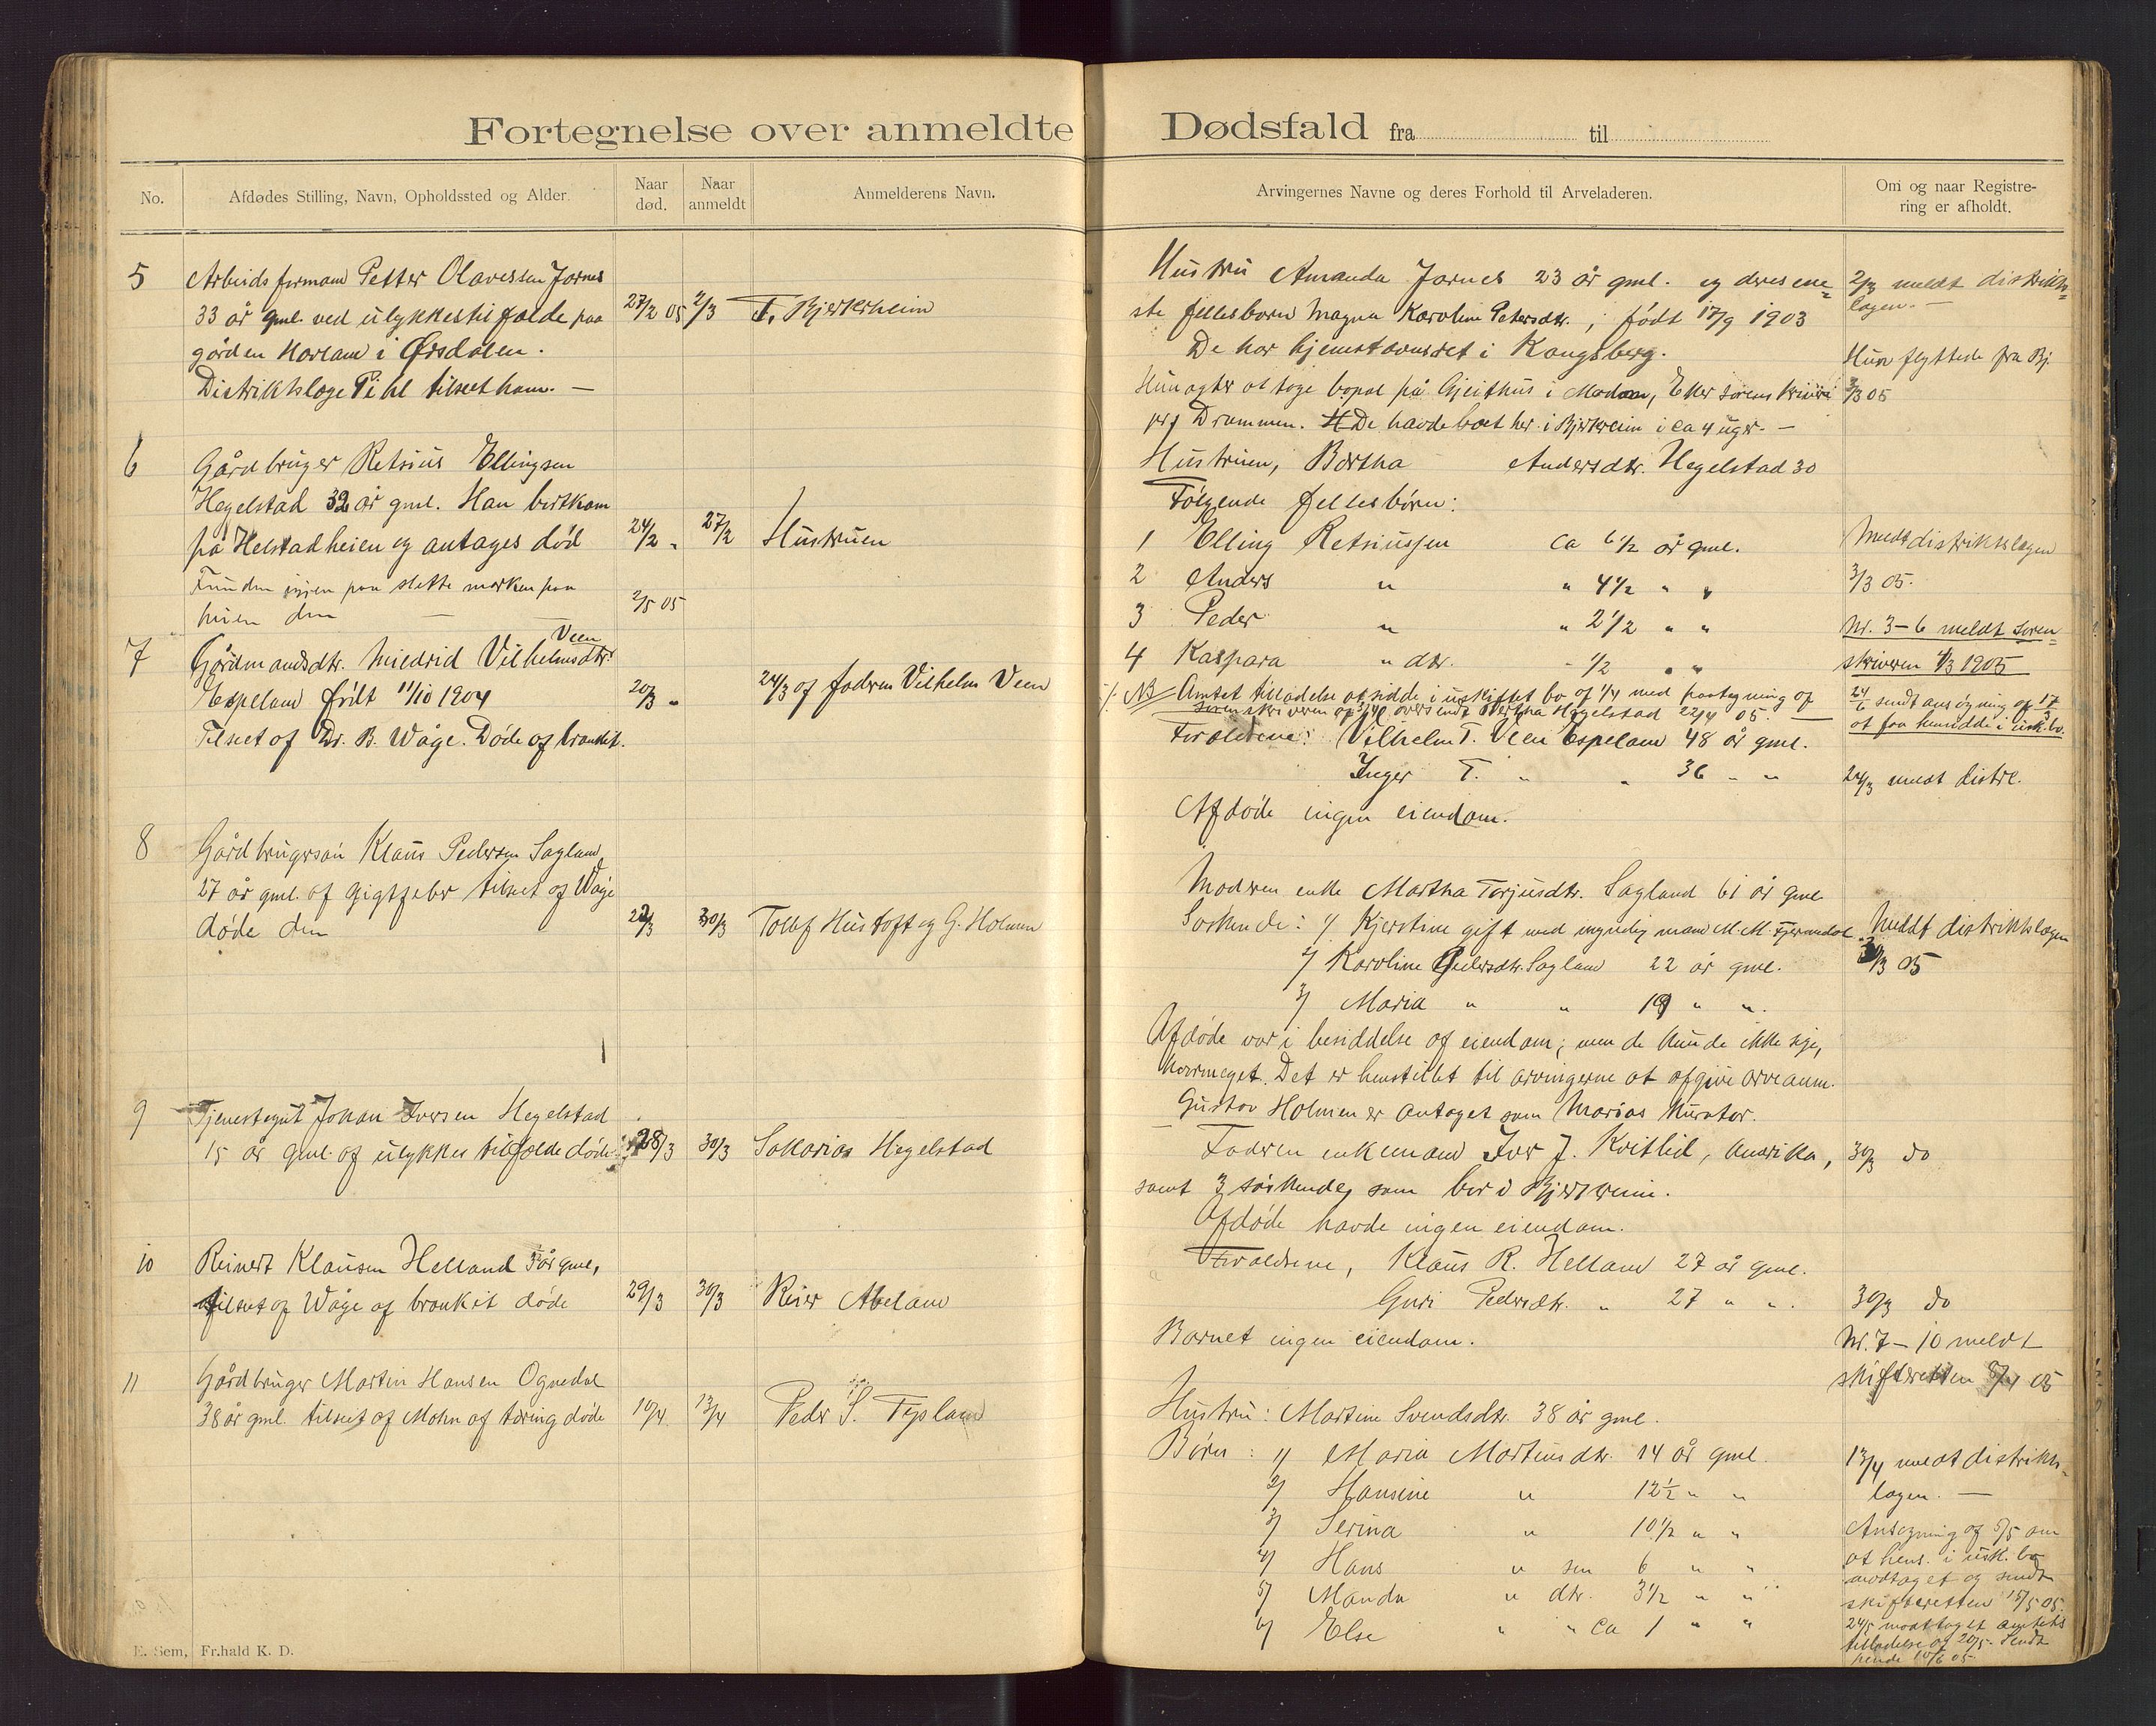 Fortegnelse over anmeldte Dødsfald fra til
No. Afdødes Stilling, Navn, Opholdssted og Alder. Naar død. Naar anmeldt Anmelderens Navn.
Arvingernes Navne og deres Forhold til Arveladeren. Om og naar Registrering er afholdt.
5 Arbeidsformand Petter Olavessen Jornes
33 år gml. ved ulykkestilfælde paa 27/2 05 2/3 T. Bjerkrheim
gården Hovland i Ørsdalen.
Distriktslæge Pihl tilseet ham. —
6 Gårdbruger Retsius Ellingsen
Hegelstad 32 år gml. Han bortkom
på Helstadheien og antages død 24/2 " 27/2 Hustruen
Funden igjen paa slette marken paa
heien den — 2/5 05
7 Gårdmandsdtr. Miedrid Vilhelmsdtr. Veen
Espeland født 11/10 1904 20/3 " 24/3 af faderen Vilhelm Veen
Tilseet af Dr. B. Wåge. Døde af bronkit.
8 Gårdbrugersøn Klaus Pedersen Sagland,
27 år gml. af gigtfeber tilseet af Wåge
døde den 22/3 30/3 Tollef Hustoft og G. Holmen
9 Tjenestegut Johan Iversen Hegelstad
15 år gml. af ulykkestilfælde døde 28/3 30/3 Sakarias Hegelstad
10 Reinert Klausen Helland år gml,
tilseet af Wåge af bronkit døde 29/3 30/3 Reier Abeland
11 Gårdbruger Martin Hansen Ognedal
38 år gml. tilseet af Mohn af tæring døde 10/4 13/4 Peder S. Fypland
E. Sem, Fr.hald K. D.
Hustru Amanda Jornes 23 år gml. og deres ene=
ste fællesbarn Magna Karoline Petersdtr., født 17/9 1903
De har hjemstavnsret i Kongsberg.
Hun agter at tage bopæl på Gjeithus i Modum, Eker sorenskriveri
pr. Drammen. De havde boet her i Bjerkreim i ca 4 uger. —
2/3 meldt distrikts=
lægen. —
Hun flyttede fra Bj.
3/3 05
Hustruen, Bertha Andersdtr. Hegelstad 30
Følgende fællesbørn:
1 Elling Retsiussen ca 6 1/2 år gml.
2 Anders " " 4 1/2 " "
3 Peder " " 2 1/2 " "
4 Kaspara " dtr. - 1/2 " "
Meldt distriktslægen
3/3 05.
Nr. 3-6 meldt soren=
skriveren 4/3 1905
NB Amtet tilladelse at sidde i uskiftet bo af 1/4 med paategning af
sorenskriveren af oversendt Bertha Hegelstad 22/4 05. —
24/6 sendt ansøgning af 17/3
at faa hensidde i usk. bo.
Forældrene: Vilhelm T. Veen Espeland 48 år gml.
Inger T. " " 36 - "
24/3 meldt distrl.
Afdøde ingen eiendom.
Moderen enke Martha Torjusdtr. Sagland 61 år gml
Søskende: 1/ Kjerstine gift med myndig mand M. M. Fjermedal
2/ Karoline Pedersdtr. Sagland 22 år gml.
3/ Maria " " 19 " ".
Meldt distriktslægen
30/3 05
Afdøde var i besiddelse af eiendom; men de kunde ikke sige,
hvormeget. Det er henstillet til arvingerne at afgive arveanm.
Gustav Holmen er antaget som Marias kurator.
Faderen enkemand Iver J. Kvitlid, Amerika, 30/3 do
samt 3 søskende, som bor i Bjerkreim.
Afdøde havde ingen eiendom.
Forældrene, Klaus R. Helland 27 år gml.
Guri Pedersdtr. " 27 " ". 30/3 do
Barnet ingen eiendom.
Nr. 7-10 meldt
skifteretten 8/4 05
Hustru: Martine Svendsdtr. 38 år gml.
Børn: 1/ Maria Martinsdtr. 14 år gml.
2/ Hansine " 12 1/2 " "
3/ Serina " 10 1/2 " "
4/ Hans " søn 6 " "
5/ Manda " dtr. 3 1/2 " "
6/ Else " " ca 1 " "
13/4 meldt distrikts=
lægen. —
Ansøgning af 5/5 om
at hens. i usk. bo
modtaget og sendt
skifteretten 15/5 05.
24/5 modtaget amtets
tilladelse af 20/5. Sendt
hende 10/6 05.